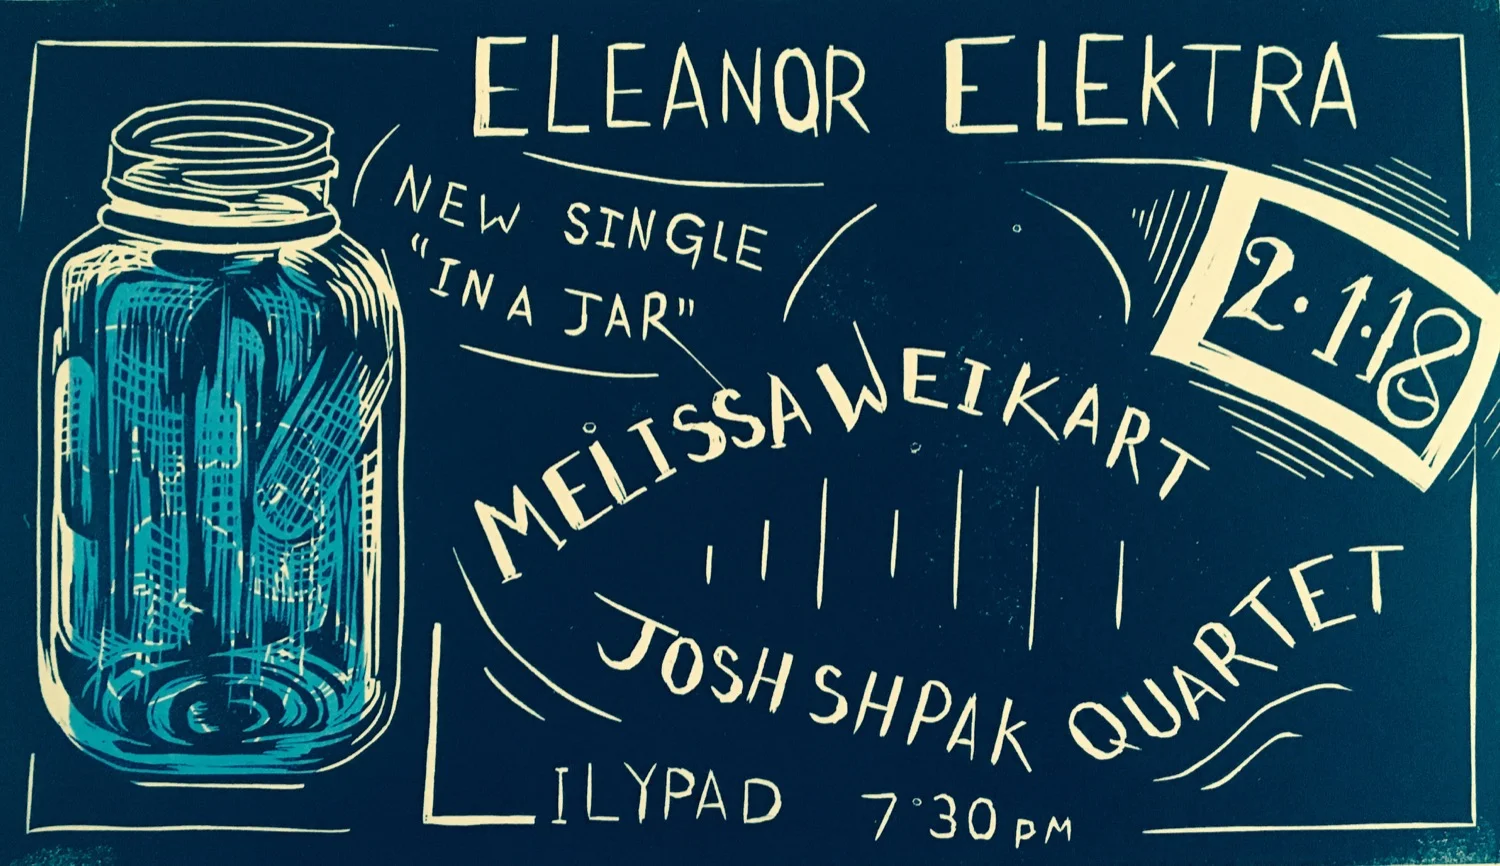 ELEANOR ELEKTRA
NEW SINGLE
"IN A JAR"
2.1.18
MELISSA WEIKART
JOSH SHPAK QUARTET
LILYPAD 7:30 PM